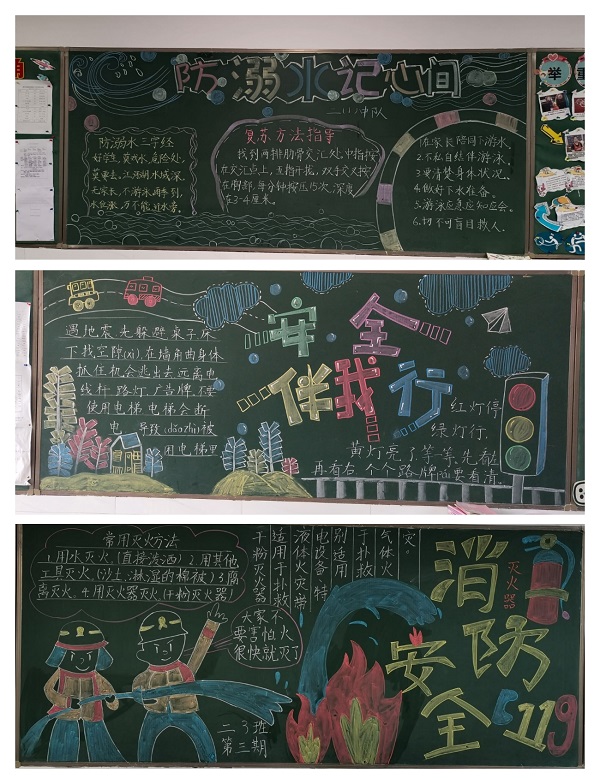 防溺水记心间
二(1)中队
防溺水三字经
好学生,莫戏水,危险处,
莫要去,江河湖,水域深,
无家长,不游泳,雨季到,
水位涨,万不能,过水

复苏方法指导
找到两排肋骨交汇处,中指按
在交汇点上,五指开拢,双手交叉按
在胸部,每分钟按压15次,深度
在3-4厘米。
1.在家长陪同下游泳
2.不私自结伴游泳
3.要清楚身体状况。
4.做好下水准备。
5.游泳应急应知应会。
6.切不可盲目救人。
举
安全
伴我行
遇地震先躲避桌子床
下找空隙(xì).在墙角曲身体
抓住机会逃出去远离电
线杆.路灯.广告牌.不要
使用电梯.电梯会断
电.导致(dǎozhì)被
困电梯里
红灯停
绿灯行.
黄灯亮了等一等.先看
再看右.个个路牌
要看清.
常用灭火方法
1.用水灭火.(直接浇洒)2.用其他
工具灭火.(沙土、抹湿的棉被)3.隔
离灭火.4.用灭火器灭火(干粉灭火器)
灾。
气体火
于扑救
别适用
电设备.特
液体火灾带
适用于扑救
干粉灭火器
大家不
要害怕火
很快就灭了
二.3班
第三期
消防
安全
灭火器
119